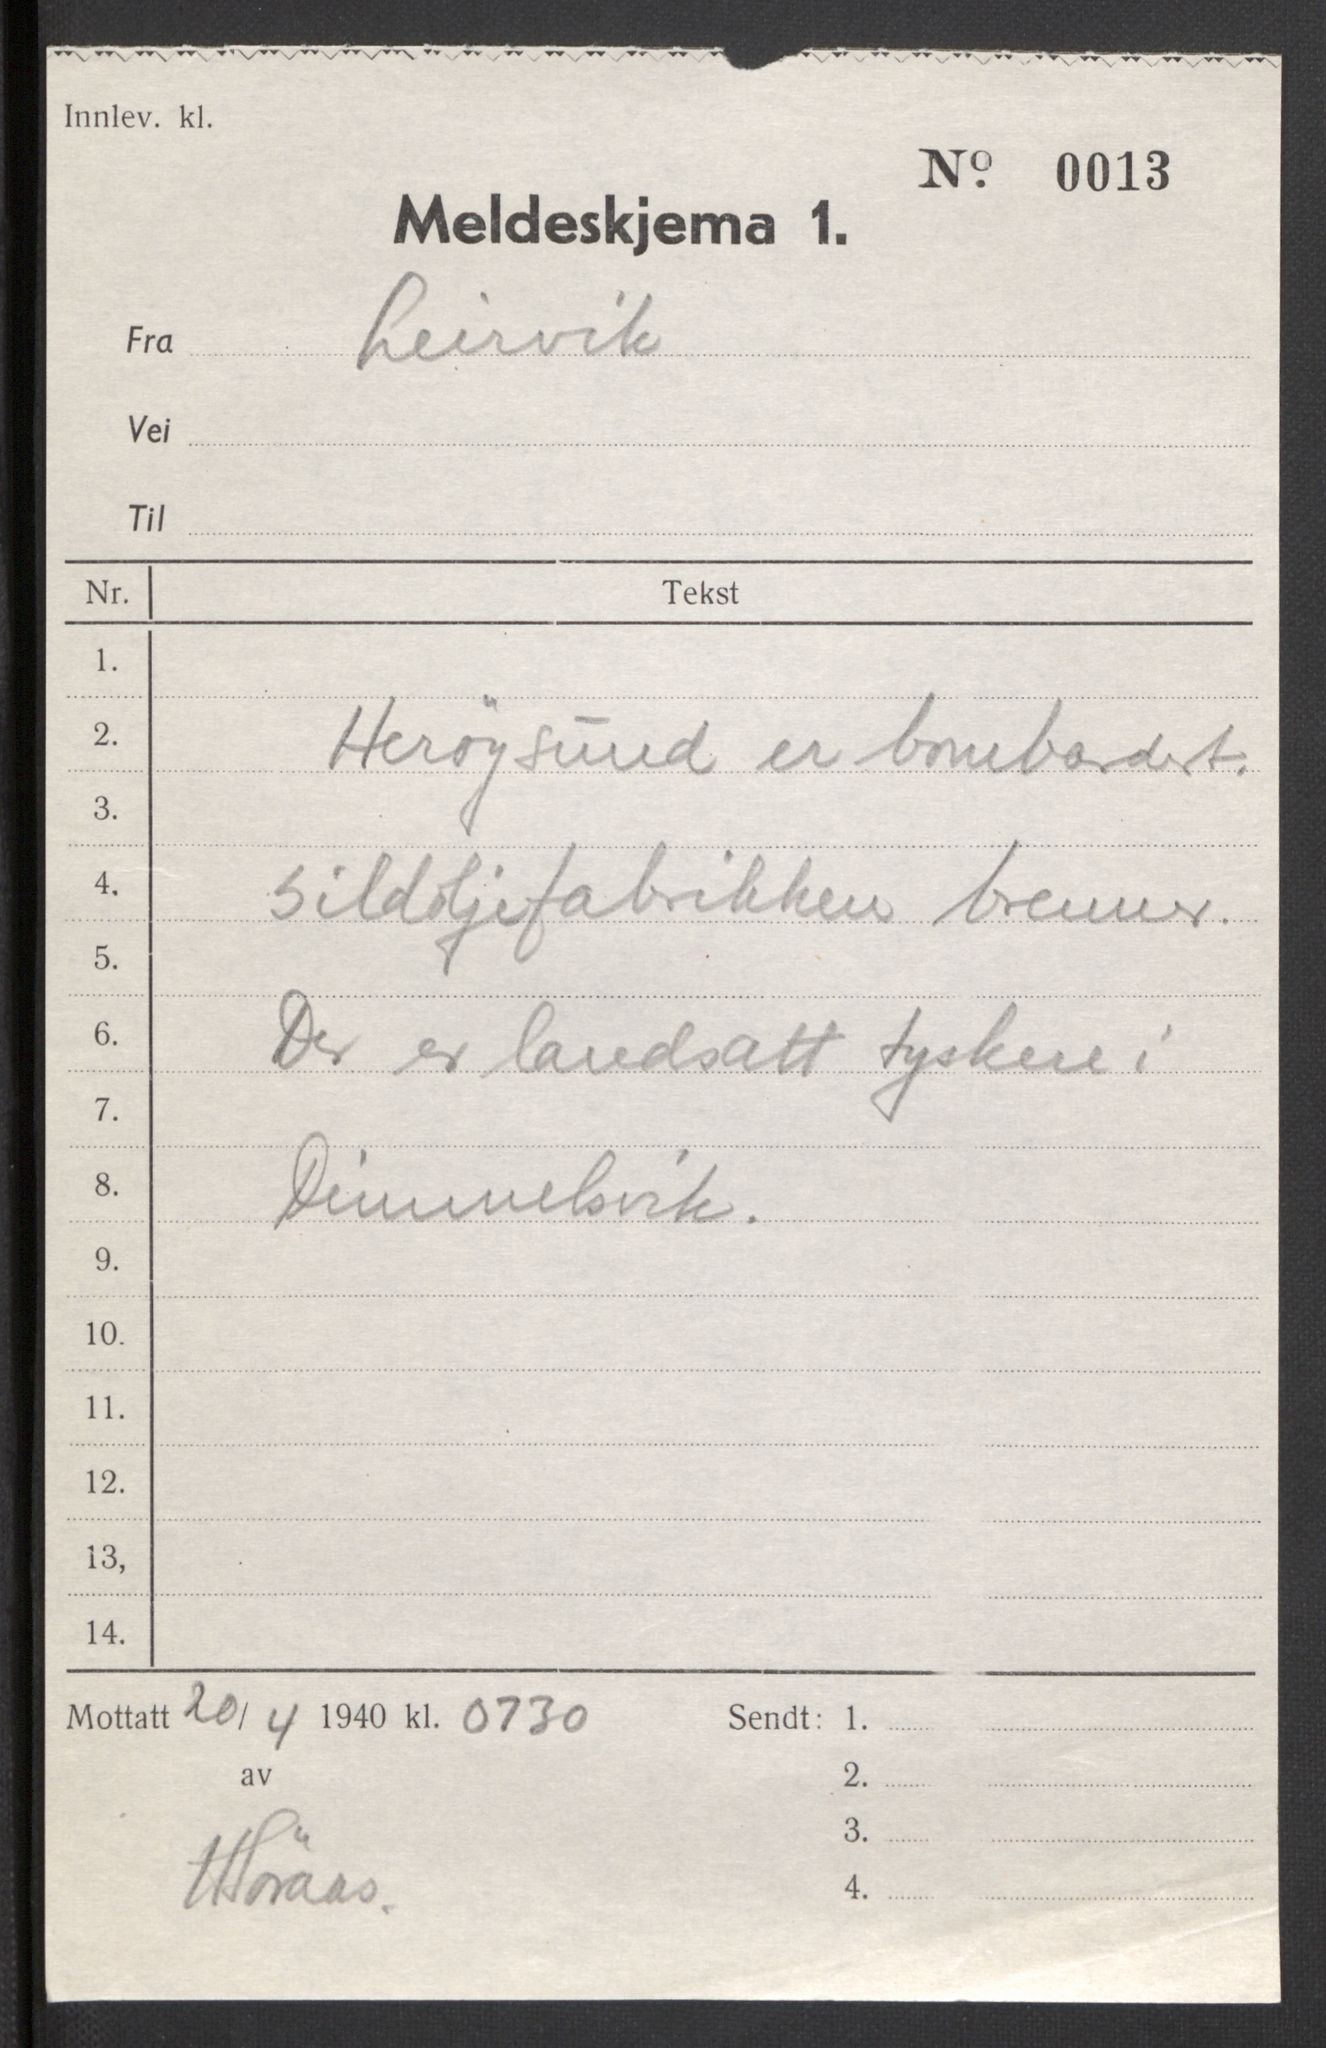 Innlev. kl.
No. 0013
Meldeskjema 1.
Fra Leirvik
Vei
Til
Nr. Tekst
1.
2. Heröysund er bombardert.
3.
4. Sildoljefabrikken brenner.
5.
6. Der er landsatt tyskere i
7.
8. Dimmelsvik.
9.
10.
11.
12.
13,
14.
Mottatt 20/4 1940 kl. 0730 Sendt: 1.
av 2.
3.
HSöraas. 4.